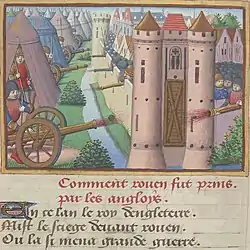 Comment rouen fut prins
par les angloys.
En ce lan le roy dengleterre.
Mist le siege deuant rouen.
Ou la si mena grande guerre.